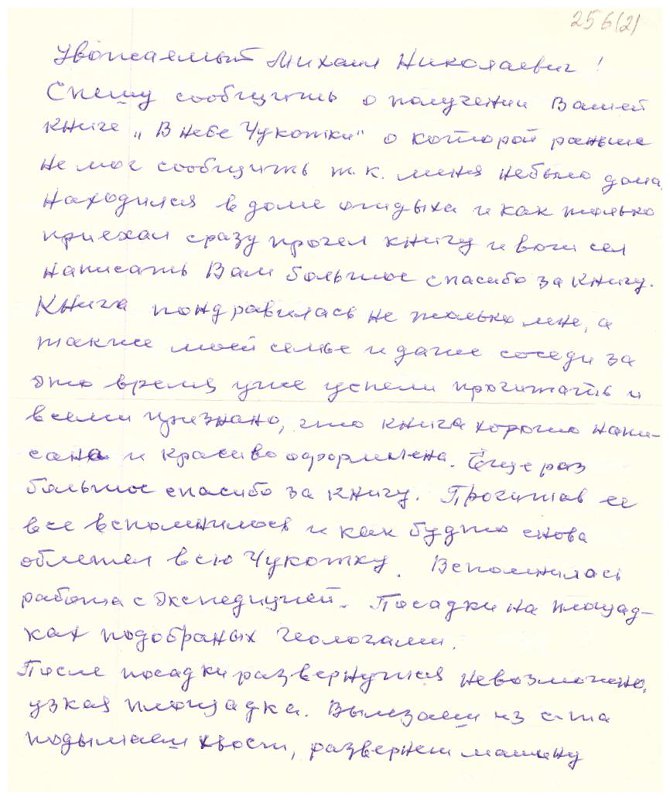 256(2)
Уважаемый Михаил Николаевич!
Спешу сообщить о получении Вашей
книге „В небе Чукотки" о которой раньше
не мог сообщить т.к. меня небыло дома
находился в доме отдыха и как только
приехал сразу прочел книгу и вот сел
написать Вам большое спасибо за книгу.
Книга пондравилась не только мне, а
также моей семье и даже соседи за
это время уже успели прочитать и
всеми признано, что книга хорошо напи-
сана и красиво оформлена. Еще раз
большое спасибо за книгу. Прочитав ее
все вспомнилося и как будто снова
облетел всю Чукотку. Вспомнилась
работа с Экспедицией. Посадки на площад-
ках подобраных геологами.
После посадки развернутся невозможно,
узкая площадка. Вылезаем из с-та
подымаем хвост, развернем машину